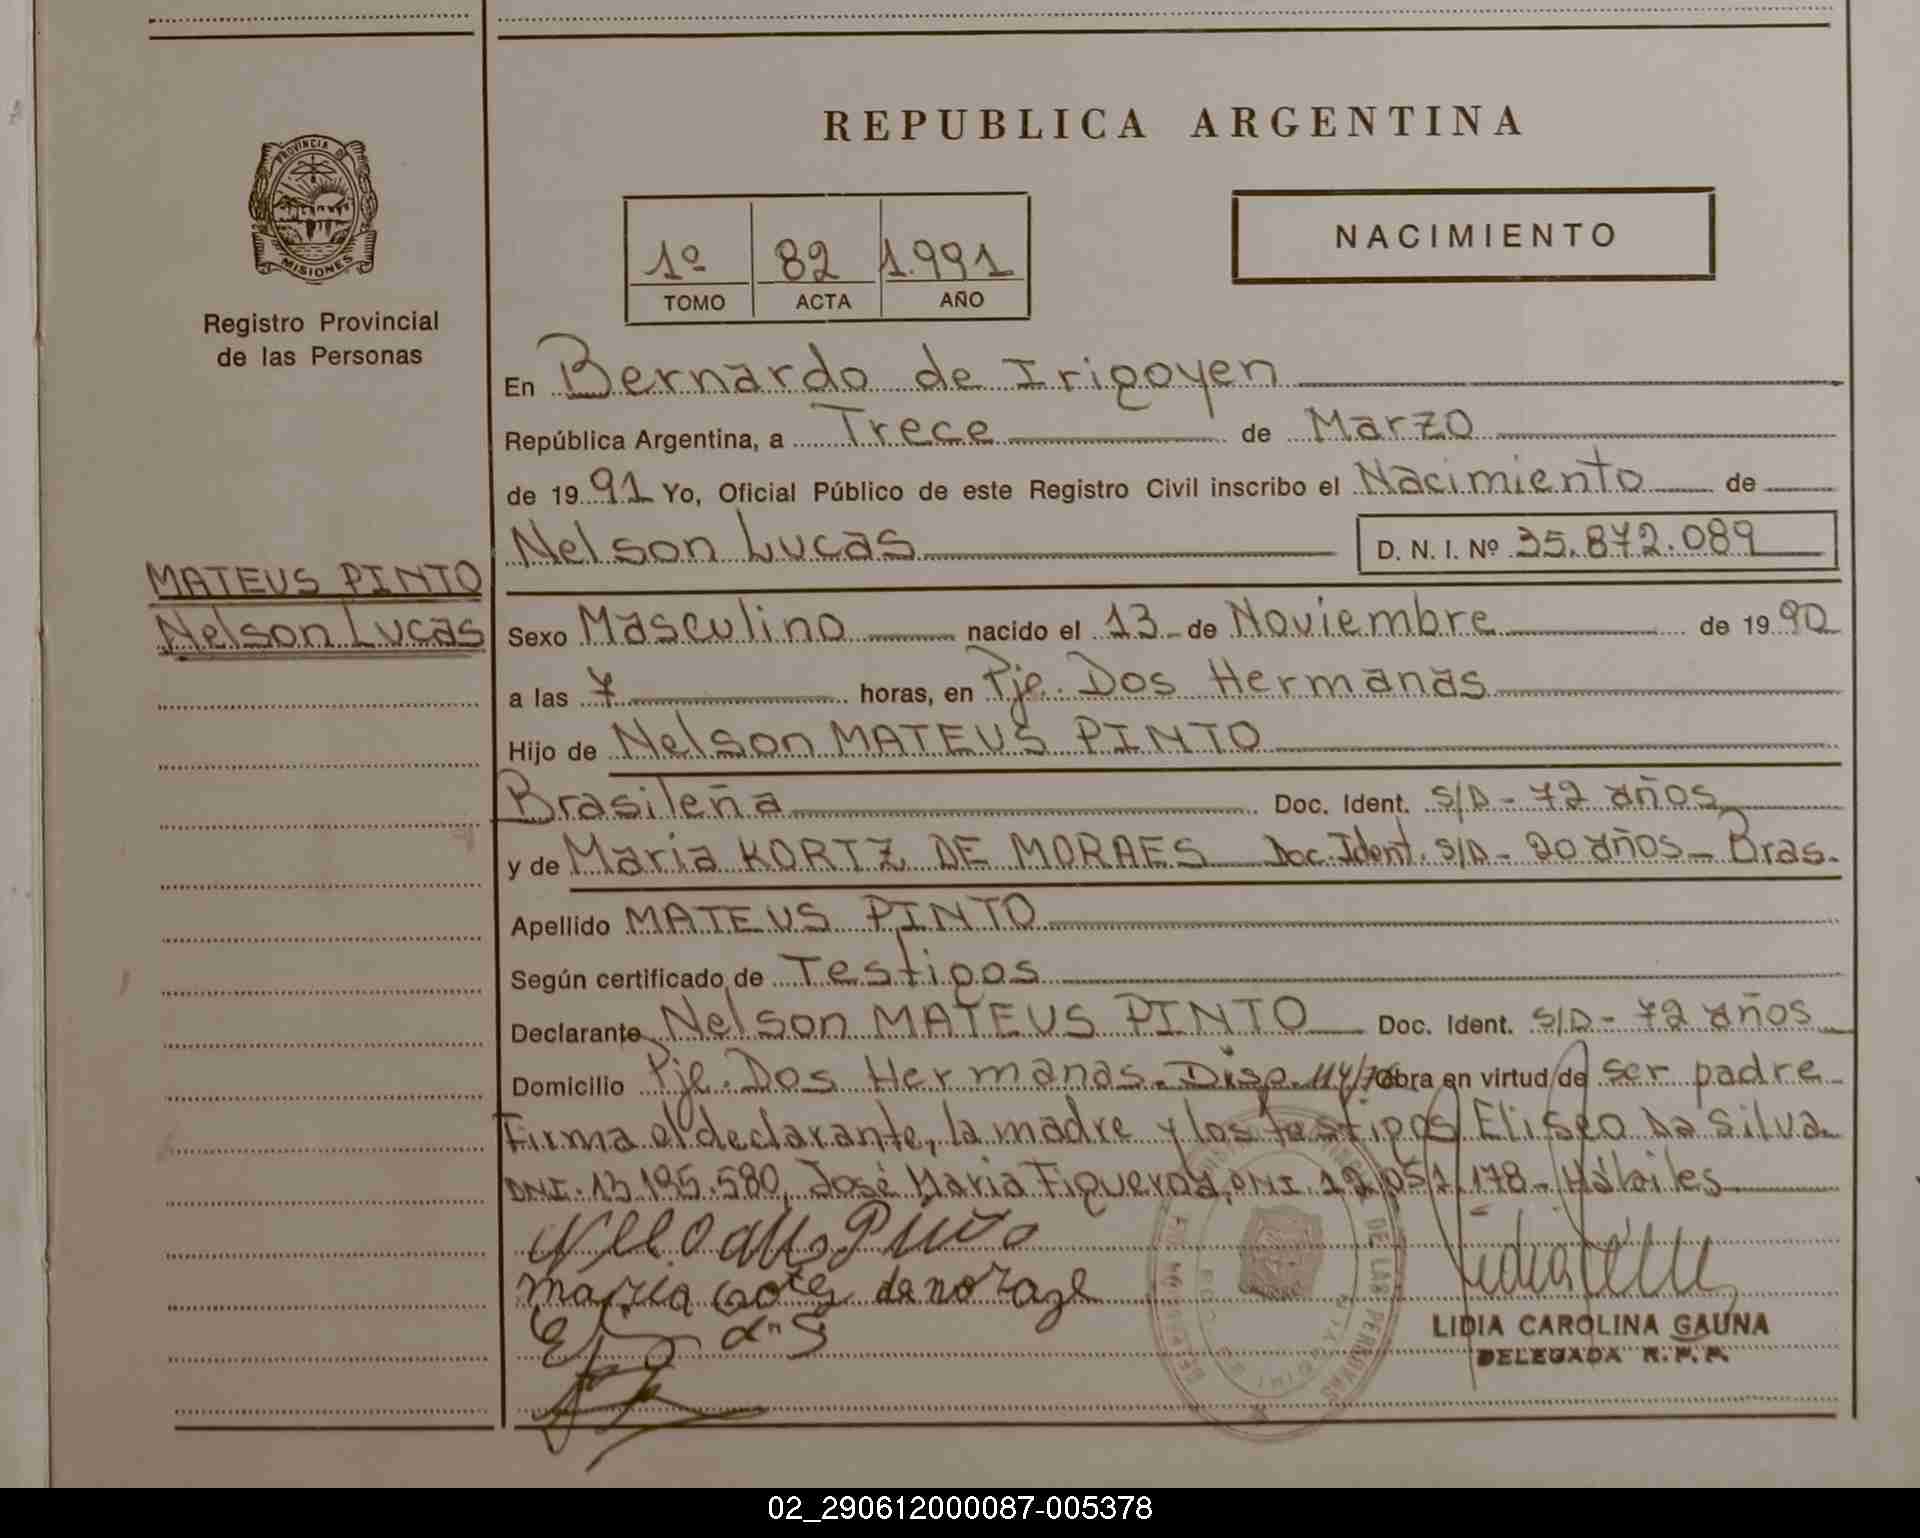 REPUBLICA ARGENTINA
PROVINCIA DE
MISIONES
Registro Provincial
de las Personas
NACIMIENTO
1º 82 1.991
TOMO ACTA AÑO
En Bernardo de Irigoyen
República Argentina, a Trece de Marzo
de 1991 Yo, Oficial Público de este Registro Civil inscribo el Nacimiento de
Nelson Lucas D. N. I. Nº 35.872.089
MATEUS PINTO
Nelson Lucas
Sexo Masculino nacido el 13 de Noviembre de 1990
a las 7 horas, en Pje. Dos Hermanas
Hijo de Nelson MATEUS PINTO
Brasileña Doc. Ident. S/D - 72 años
y de Maria KORTZ DE MORAES Doc. Ident. S/D - 20 años - Bras.
Apellido MATEUS PINTO
Según certificado de Testigos
Declarante Nelson MATEUS PINTO Doc. Ident. S/D - 72 años
Domicilio Pje. Dos Hermanas. Disp. 114/78 Obra en virtud de ser padre
Firma el declarante, la madre y los testigos Eliseo Da Silva
DNI. 13.195.580, José Maria Figueroa, DNI. 12.057.178 - Hábiles
Pinto
maria
DE LAS PERSONAS
LIDIA CAROLINA GAUNA
DELEGADA R. P. P.
02_290612000087-005378